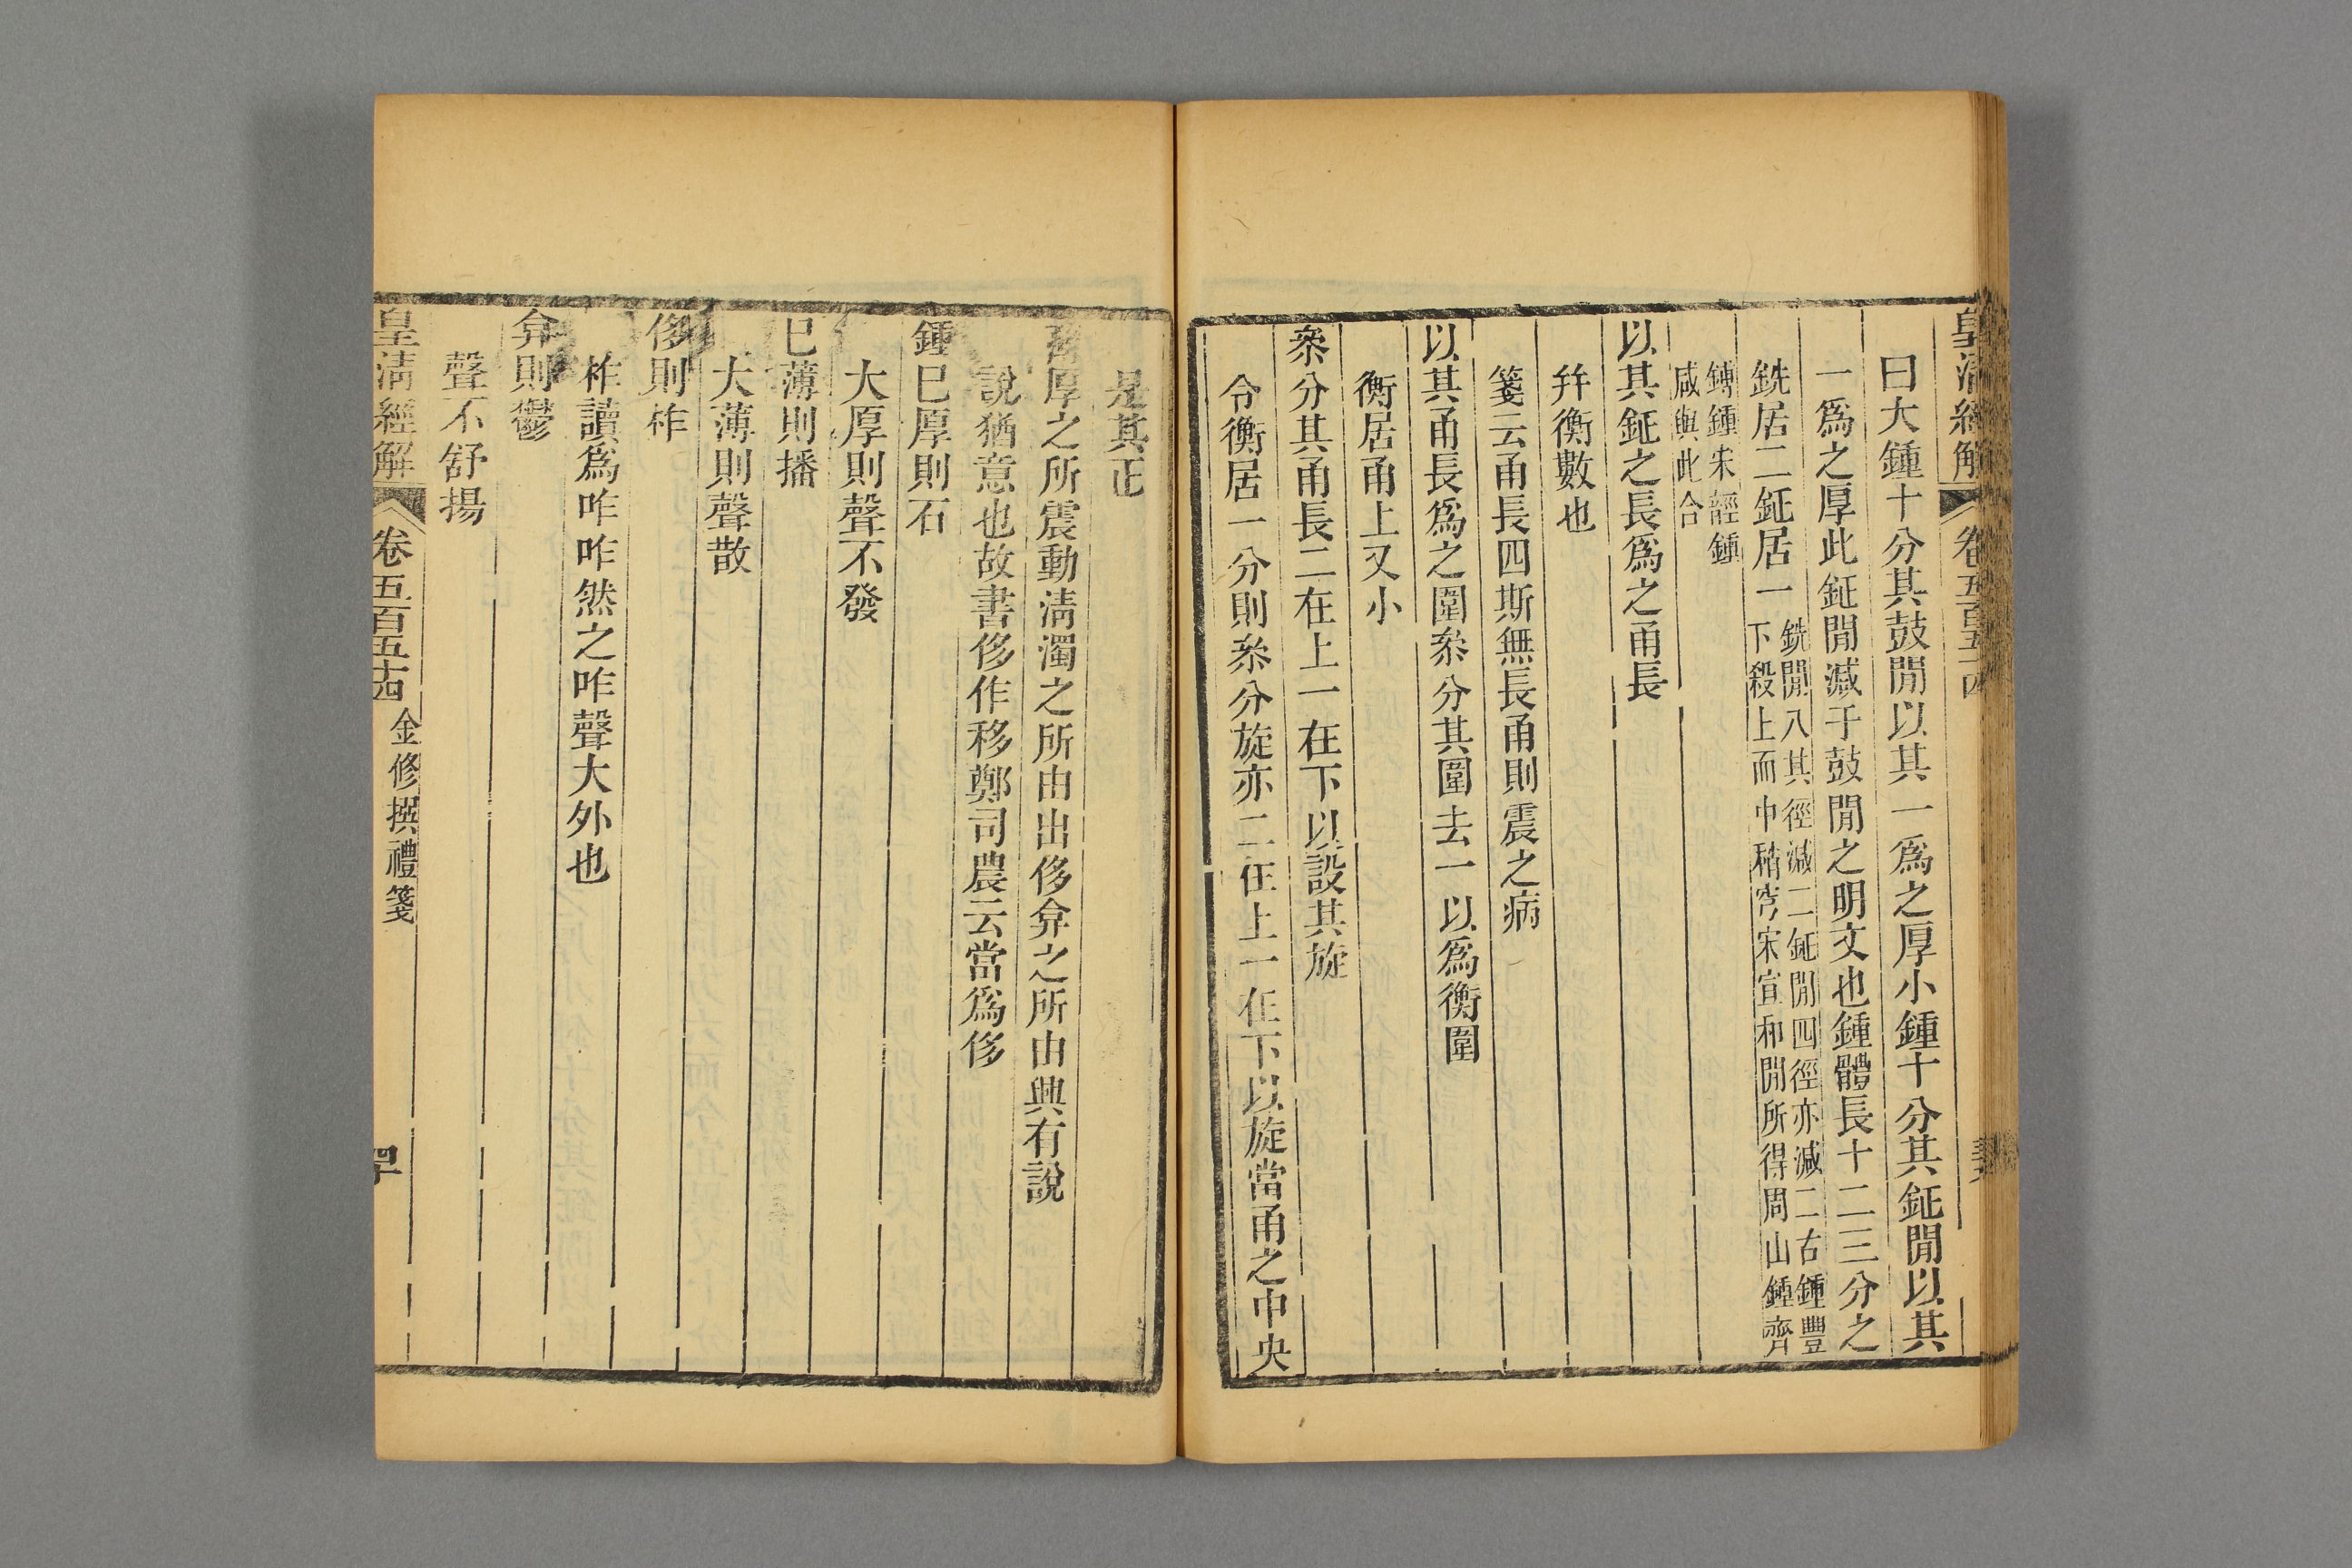 皇清經解 卷五百五十四
曰大鍾十分其鼓閒以其一爲之厚小鍾十分其鉦閒以其
一爲之厚此鉦閒減于鼓閒之明文也鍾體長十二三分之
銑居二鉦居一
銑閒八其徑減二鉦閒四徑亦減二古鍾豐
下殺上而中稍穹宋宣和閒所得周山鍾齊
鎛鍾宋䪫鍾
咸與此合
以其鉦之長爲之甬長
幷衡數也
箋云甬長四斯無長甬則震之病
以其甬長爲之圍叅分其圍去一以爲衡圍
衡居甬上又小
叅分其甬長二在上一在下以設其旋
令衡居一分則叅分旋亦二在上一在下以旋當甬之中央
是其正
厚之所震動淸濁之所由出侈弇之所由興有說
說猶意也故書侈作移鄭司農云當爲侈
鍾已厚則石
大厚則聲不發
已薄則播
大薄則聲散
侈則柞
柞讀爲咋咋然之咋聲大外也
弇則鬱
聲不舒揚
皇清經解 卷五百五十四 金修撰禮箋